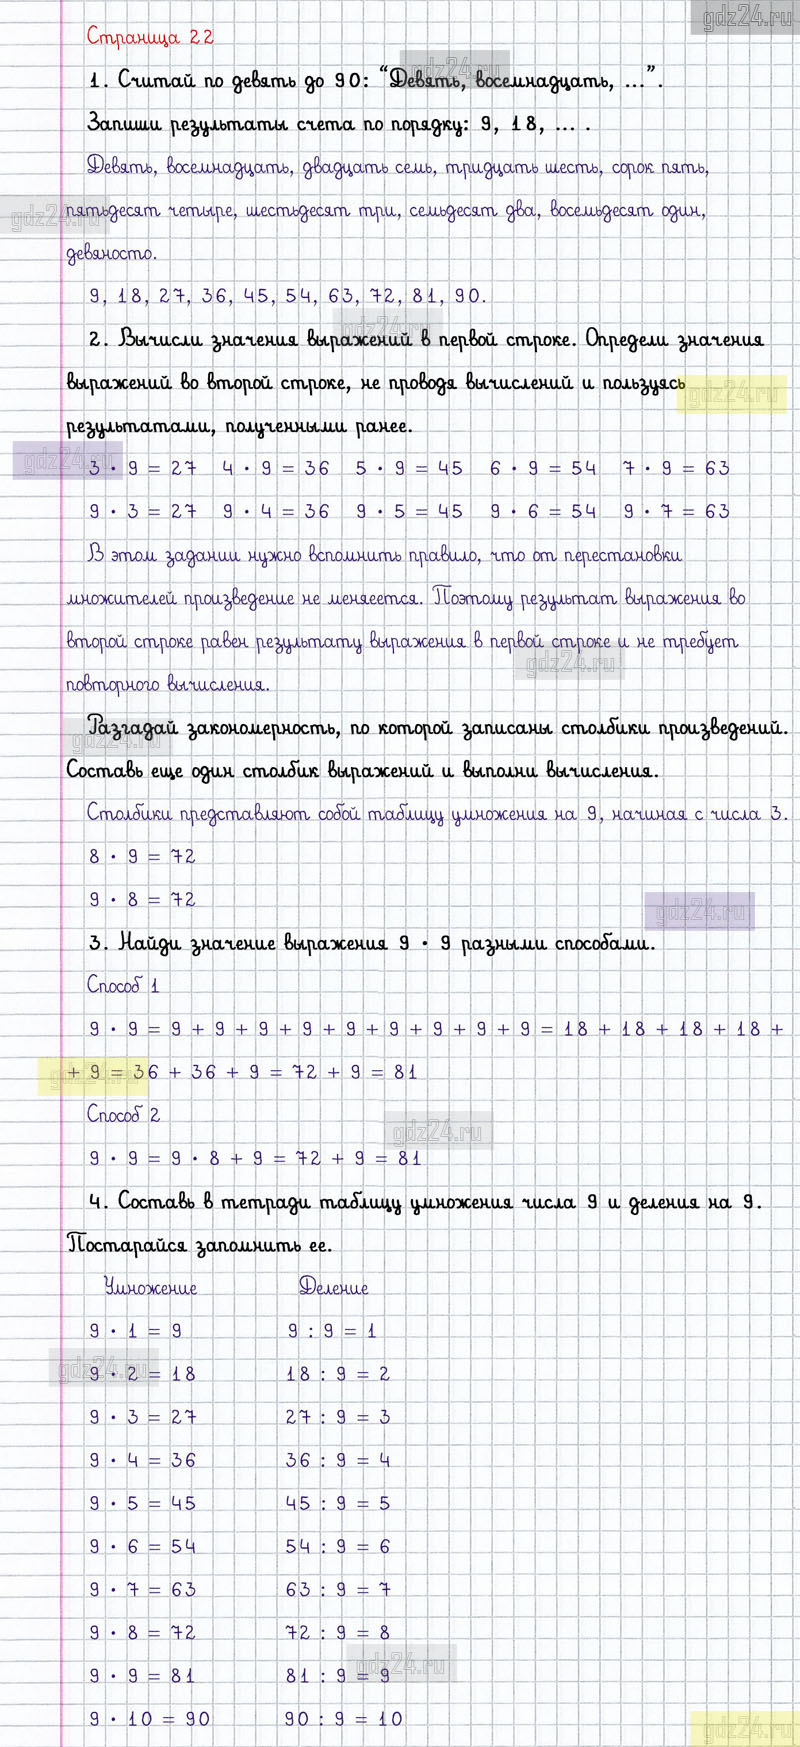 gdz24.ru
Страница 22
gdz24.ru
1. Считай по девять до 90: “Девять, восемнадцать, ...”.
Запиши результаты счета по порядку: 9, 18, ... .
Девять, восемнадцать, двадцать семь, тридцать шесть, сорок пять,
gdz24.ru
пятьдесят четыре, шестьдесят три, семьдесят два, восемьдесят один,
девяносто.
9, 18, 27, 36, 45, 54, 63, 72, 81, 90.
gdz24.ru
2. Вычисли значения выражений в первой строке. Определи значения
выражений во второй строке, не проводя вычислений и пользуясь
gdz24.ru
результатами, полученными ранее.
gdz24.ru
3 · 9 = 27 4 · 9 = 36 5 · 9 = 45 6 · 9 = 54 7 · 9 = 63
9 · 3 = 27 9 · 4 = 36 9 · 5 = 45 9 · 6 = 54 9 · 7 = 63
В этом задании нужно вспомнить правило, что от перестановки
множителей произведение не меняеется. Поэтому результат выражения во
второй строке равен результату выражения в первой строке и не требует
gdz24.ru
повторного вычисления.
Разгадай закономерность, по которой записаны столбики произведений.
gdz24.ru
Составь еще один столбик выражений и выполни вычисления.
Столбики представляют собой таблицу умножения на 9, начиная с числа 3.
8 · 9 = 72
9 · 8 = 72
gdz24.ru
3. Найди значение выражения 9 · 9 разными способами.
Способ 1
9 · 9 = 9 + 9 + 9 + 9 + 9 + 9 + 9 + 9 + 9 = 18 + 18 + 18 + 18 +
+ 9 = 36 + 36 + 9 = 72 + 9 = 81
gdz24.ru
Способ 2
gdz24.ru
9 · 9 = 9 · 8 + 9 = 72 + 9 = 81
4. Составь в тетради таблицу умножения числа 9 и деления на 9.
Постарайся запомнить ее.
Умножение Деление
9 · 1 = 9 9 : 9 = 1
gdz24.ru
9 · 2 = 18 18 : 9 = 2
9 · 3 = 27 27 : 9 = 3
9 · 4 = 36 36 : 9 = 4
9 · 5 = 45 45 : 9 = 5
9 · 6 = 54 54 : 9 = 6
9 · 7 = 63 63 : 9 = 7
9 · 8 = 72 72 : 9 = 8
gdz24.ru
9 · 9 = 81 81 : 9 = 9
9 · 10 = 90 90 : 9 = 10
gdz24.ru